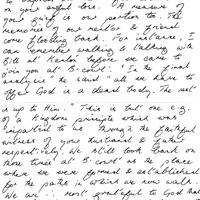 on your awful loss. "A measure of
your grief is our portion too. The
memories of our mentor & friend
come flooding back. For instance, I
can remember walking & talking with
Bill at before we came to
join you at B. court. "In the final
analysis" he said "all we have to
offer God is a dead body. The rest
is up to Him." This is but one e.g.
of a Kingdom principle which was
imparted to us through the faithful
witness of your husband & father
respectively. We still look back on
those times at B. court as the place
where we were formed & established
for the paths in which we now walk.
We are ∴ most grateful to God that